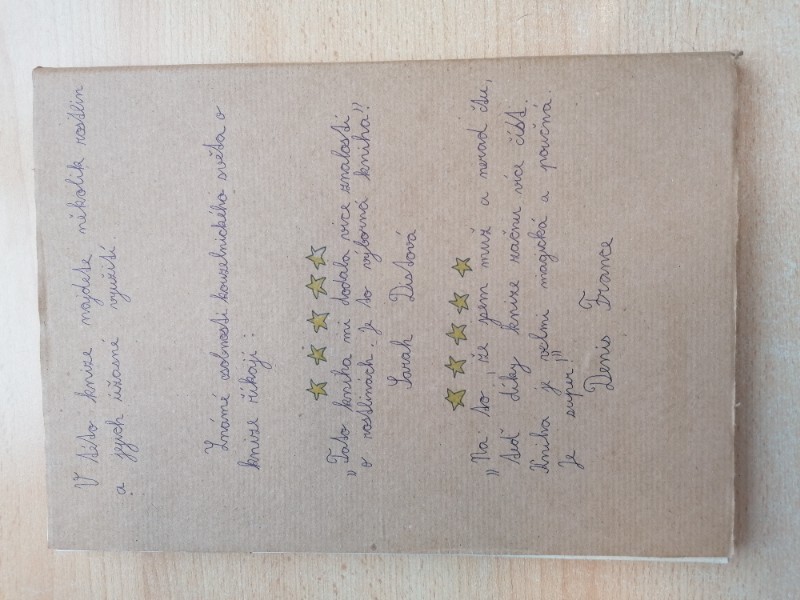 V této knize najdete několik rostlin
a jejich úžasné využití.
Známé osobnosti kouzelnického světa o
knize říkají:
"Tato kniha mi dodala více znalostí
o rostlinách. Je to výborná kniha!"
Sarah Distová
"Na to, že jsem muž a nerad čtu,
teď díky knize začnu více číst.
Kniha je velmi magická a poučná.
Je super!"
Denis France